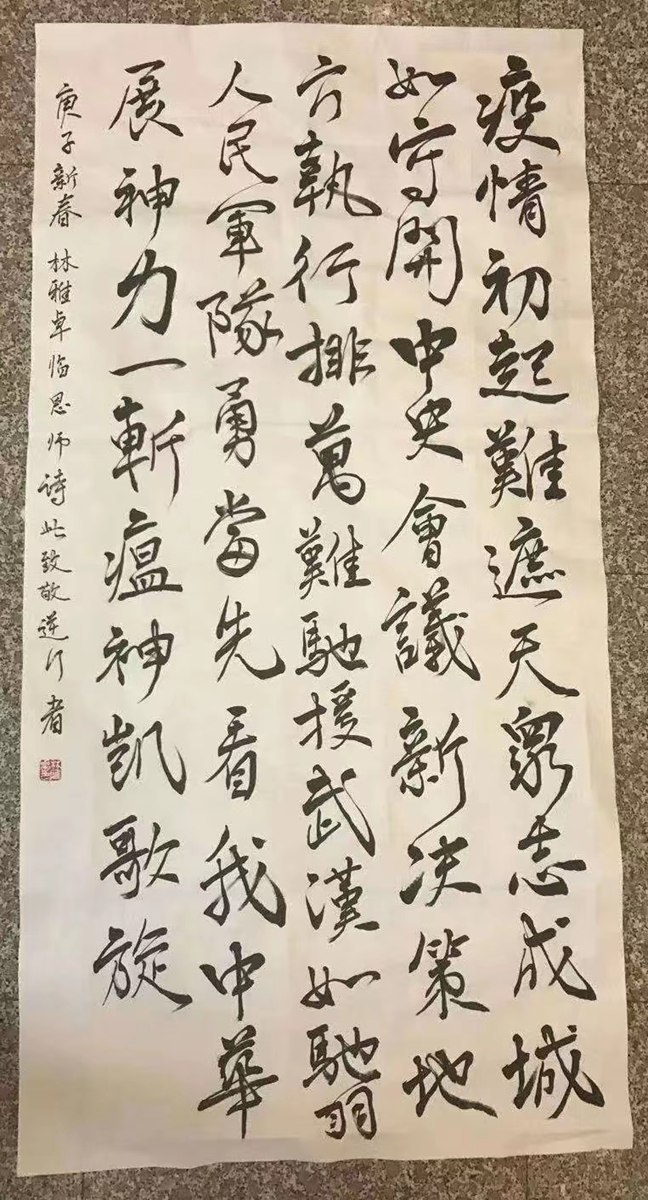 疫情初起難遮天眾志成城
如守開中央會議新决策地
方執行排萬難馳援武漢如馳羽
人民軍隊勇當先看我中華
展神力一斬瘟神凱歌旋
庚子新春 林雅卓临恩师詩此致敬逆行者